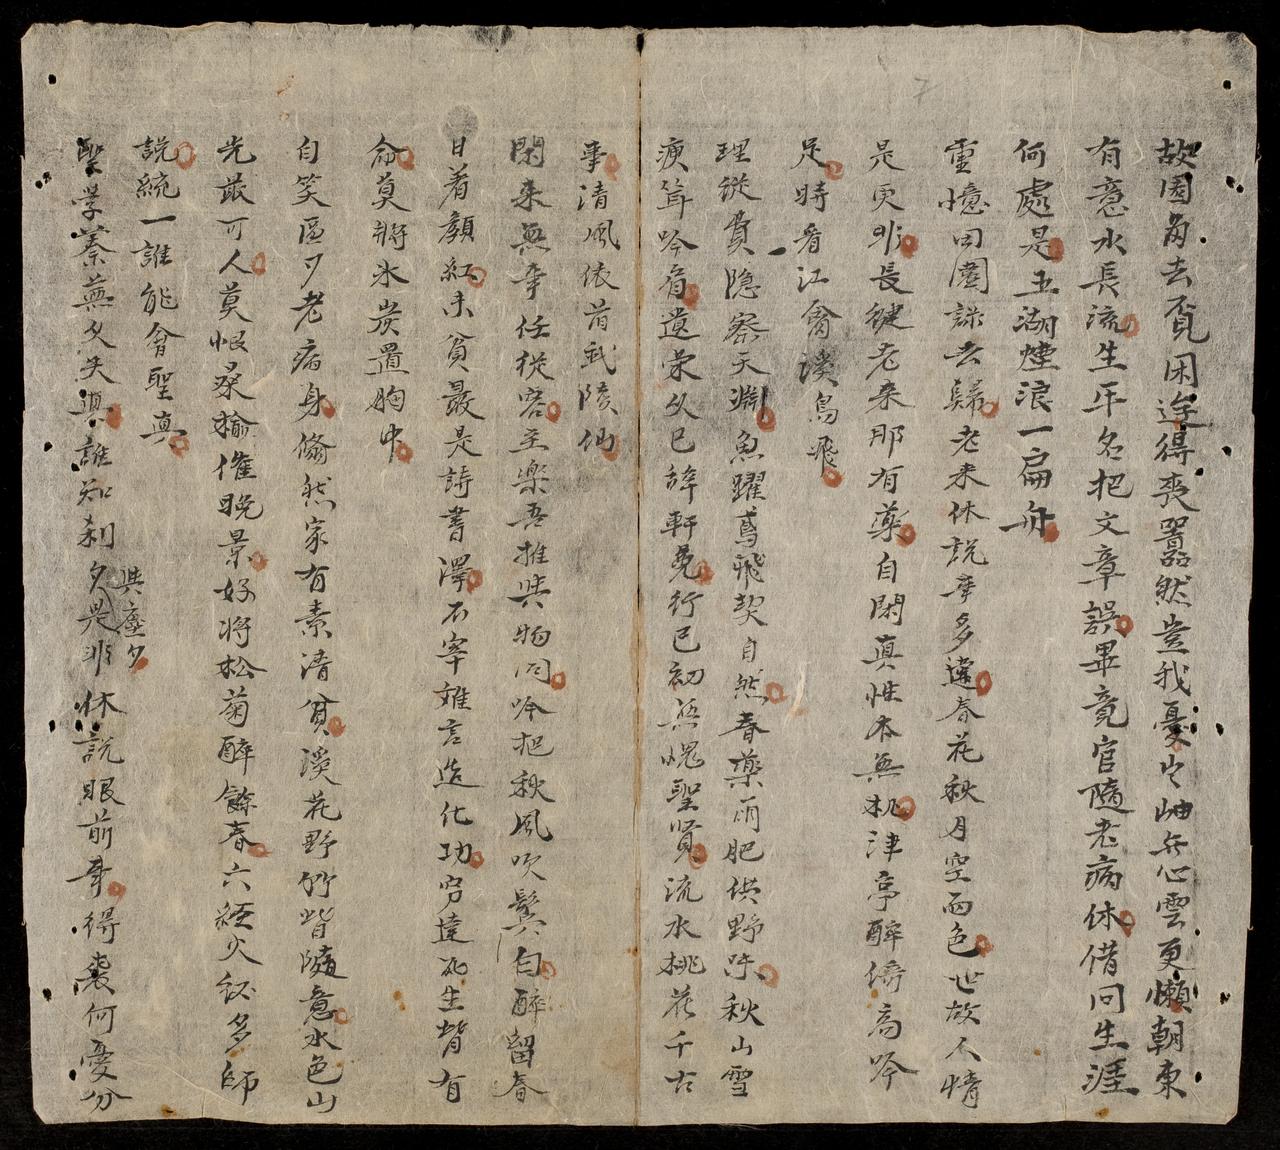 故園為去覓困途得喪囂然豈我憂出岫無心雲更懶朝東
有意水長流生平名把文章誤畢竟官隨老病休借問生涯
何處是五湖煙浪一扁舟
重憶田園謀去歸老来休說事多違春花秋月空面色世故人情
是更非長健老来那有藥自閑真性本無机津亭醉倚高吟
足時看江禽渓鳥飛
理從費隱察天淵魚躍鳶飛契自然春藥雨肥供野味秋山雪
瘦耸吟肩遺榮久已辭軒冕行己初無愧聖賢流水桃花千古
事清風依旧武陵仙
閑来無事任從容主樂吾推與物同吟把秋風吹鬓白醉留春
日着顔紅未貧最是詩書澤不宰難言造化功窮達死生皆有
命莫將氷炭置胸中
自笑區夕老病身翛然家有素清貧溪花野竹皆隨意水色山
光最可人莫恨桑榆催晚景好将松菊醉餘春六經火後多師
說統一誰能會聖真
聖学蓁蕪久失真誰知刹夕與塵夕是非休說眼前事得喪何憂分